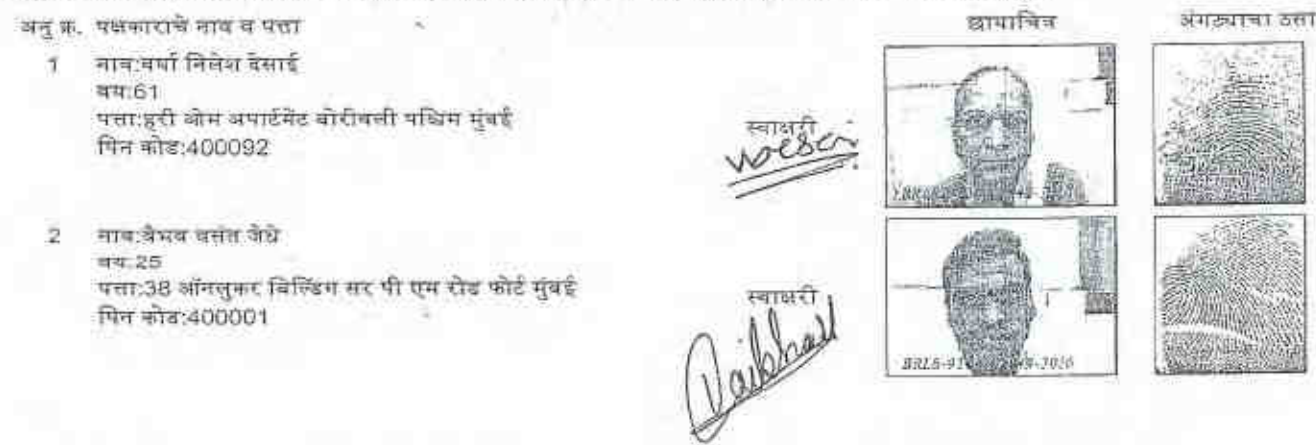 अनु क्र. पक्षकाराचे नाव व पत्ता
छायाचित्र
अंगठ्याचा ठसा
1 नाव:वर्षा निलेश देसाई
वय:61
पत्ता:हरी ओम अपार्टमेंट बोरीवली पश्चिम मुंबई
पिन कोड:400092
स्वाक्षरी
2 नाव:वैभव वसंत जेधे
वय:25
पत्ता:38 ऑनलुकर बिल्डिंग सर पी एम रोड फोर्ट मुंबई
पिन कोड:400001
स्वाक्षरी
Vaibhav